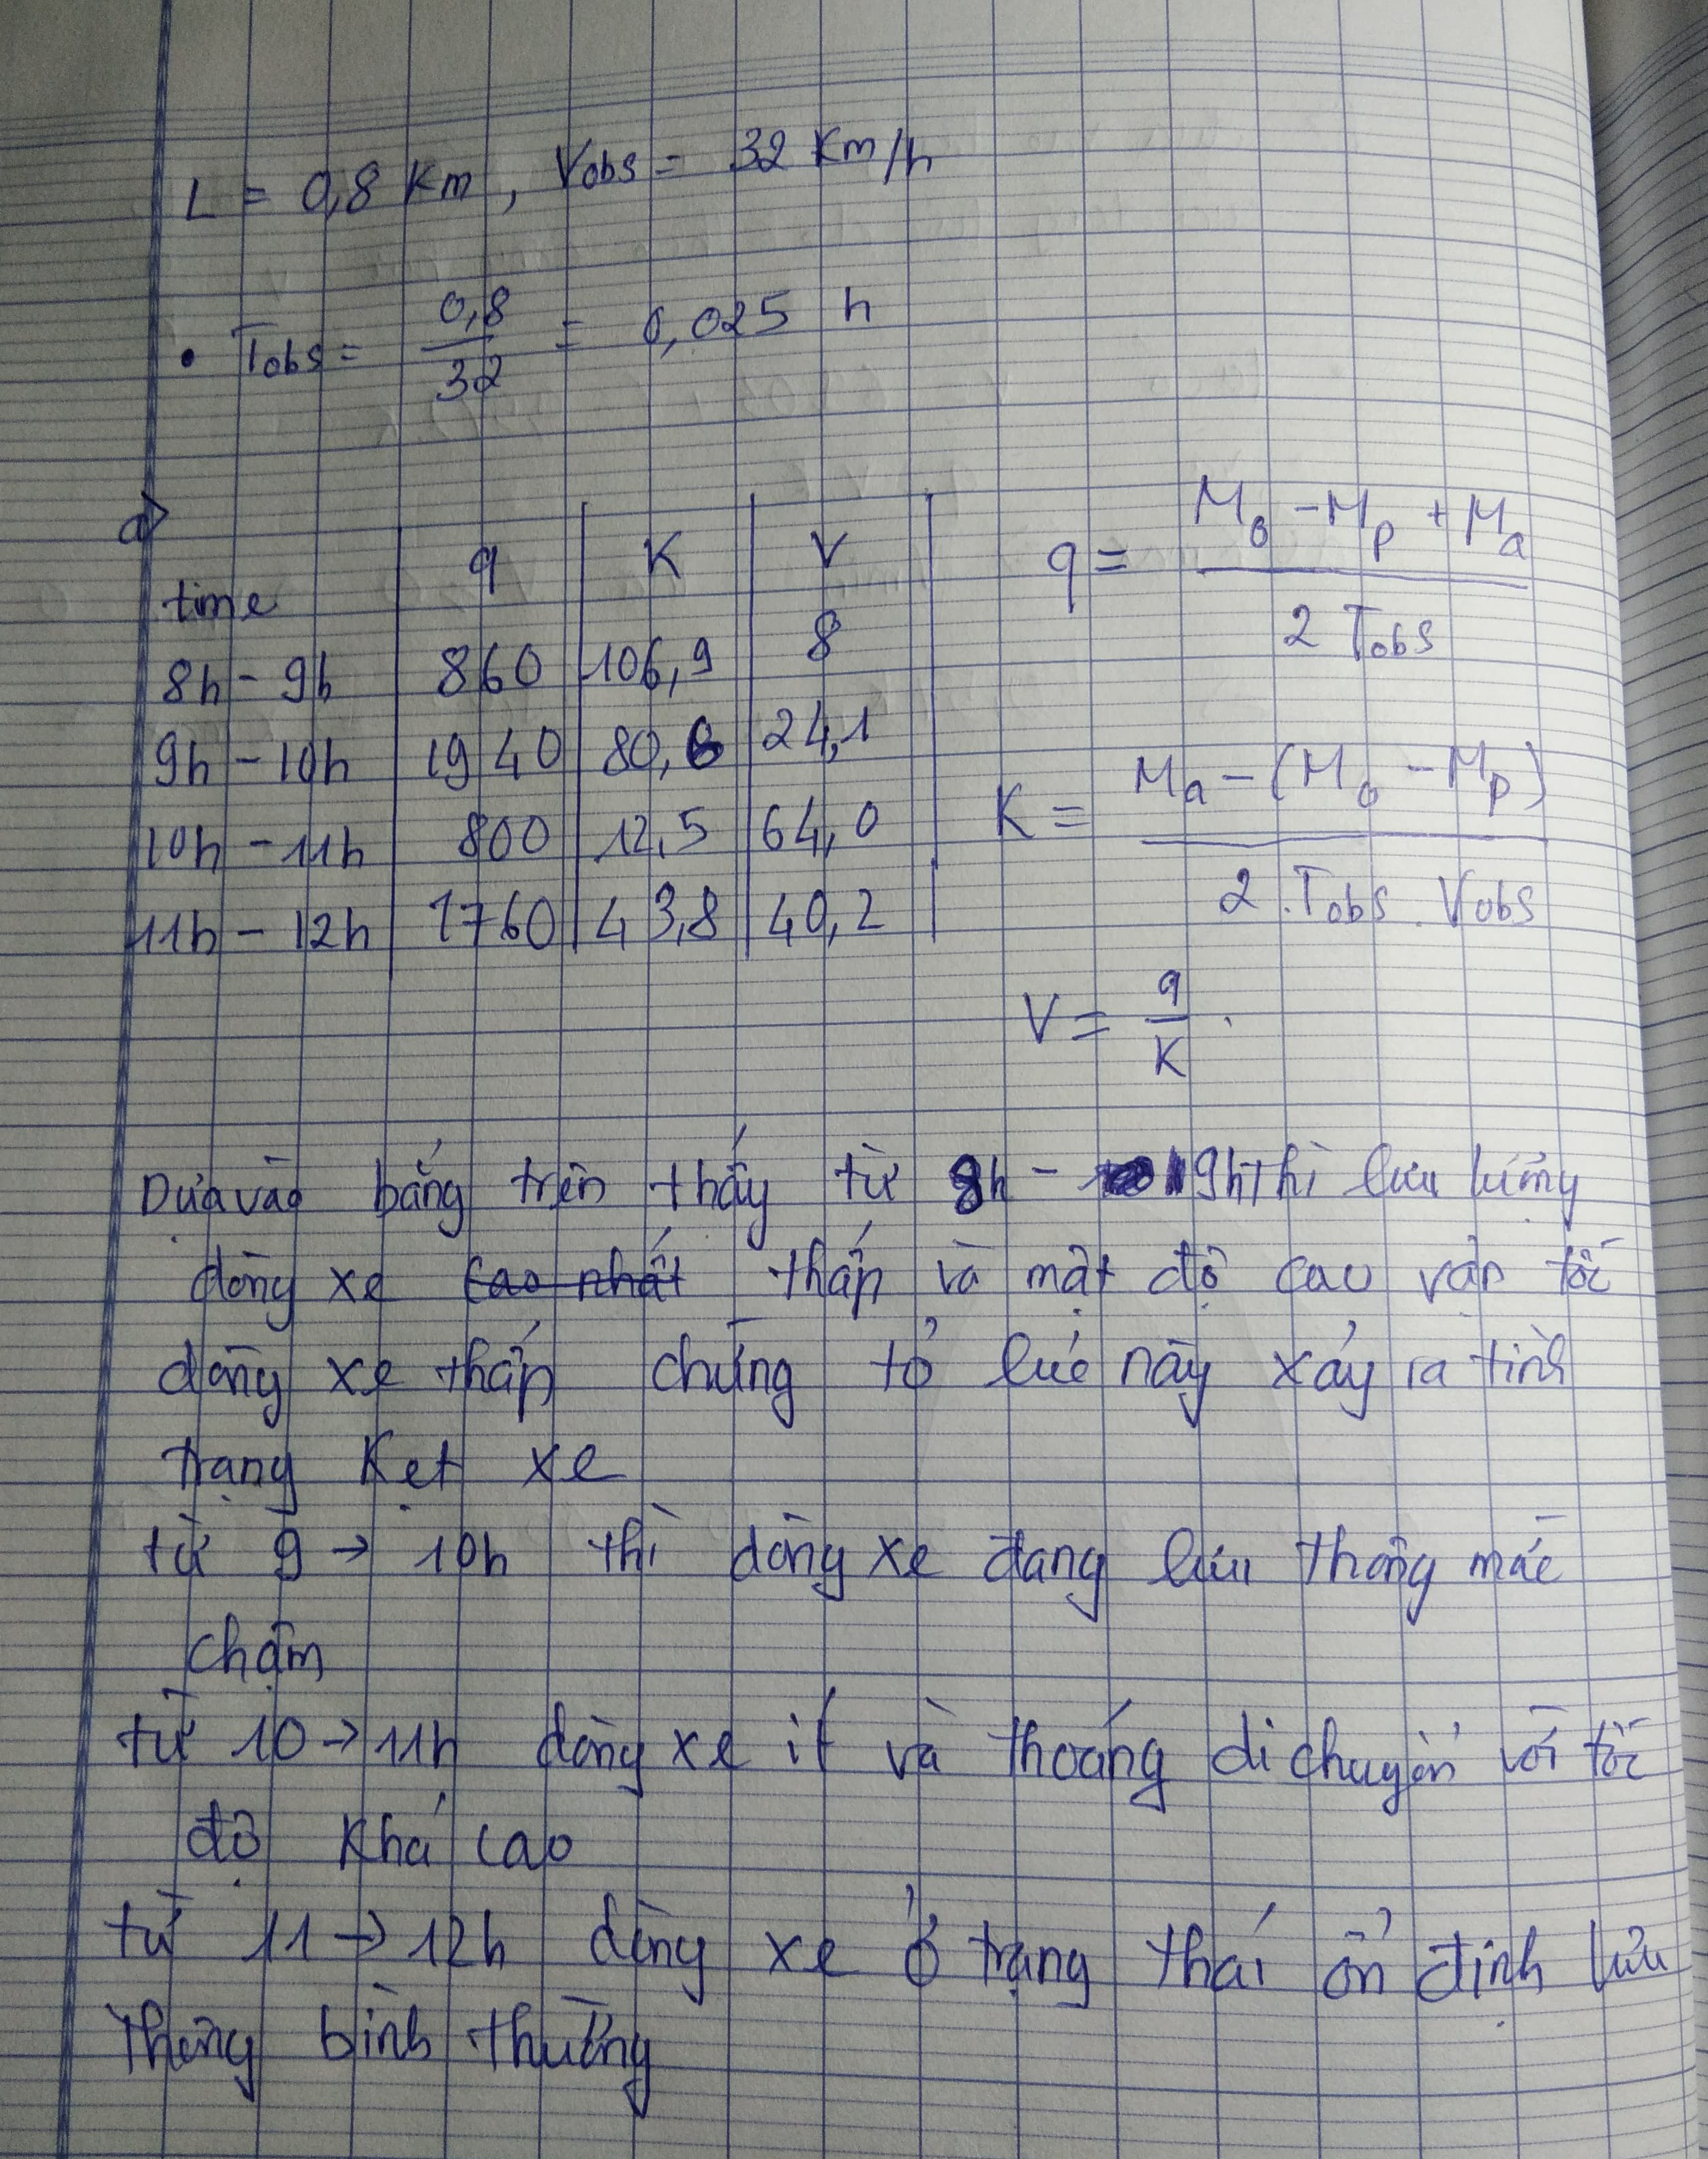 L = 0,8 Km, Vobs = 32 Km/h
• Tobs = 0,8/32 = 0,025 h
a>
time | q | K | V
8h - 9h | 860 | 106,9 | 8
9h - 10h | 1940 | 80,6 | 24,1
10h - 11h | 800 | 12,5 | 64,0
11h - 12h | 1760 | 43,8 | 40,2
q = (M₀ - Mp + Ma) / 2 Tobs
K = (Ma - (M₀ - Mp)) / 2.Tobs.Vobs
V = q/K.
Dựa vào bảng trên thấy từ 8h - 9h thì lưu lượng
dòng xe cao nhất thấp và mật độ cao vận tốc
dòng xe thấp chứng tỏ lúc này xảy ra tình
trạng Kẹt xe
từ 9 → 10h thì dòng xe đang lưu thông mức
chậm
từ 10 → 11h dòng xe ít và thoáng di chuyển với tốc
độ khá cao
từ 11 → 12h dòng xe ở trạng thái ổn định lưu
thông bình thường